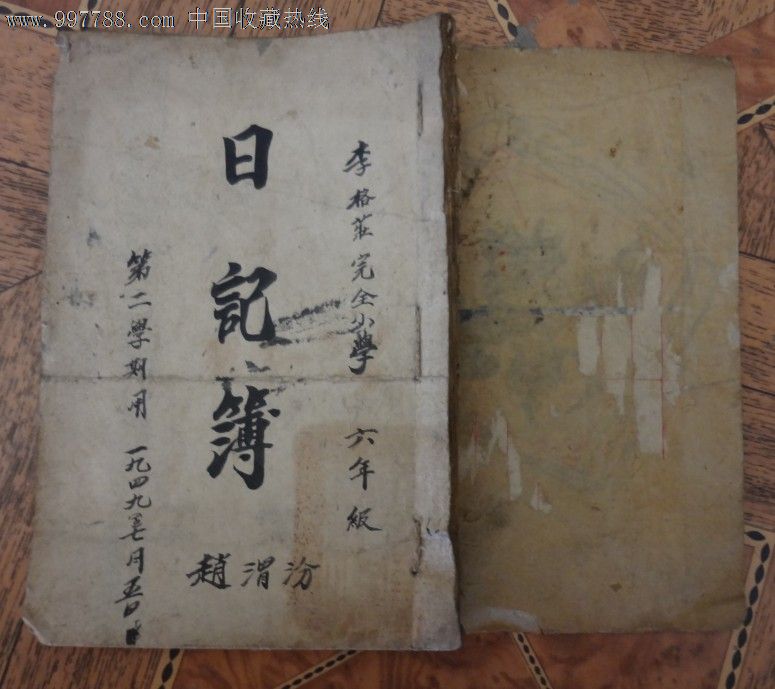 www.997788.com 中国收藏热线
李格莊完全小學 六年級
日記簿
趙渭汾
第二學期用 一九四九年七月五日